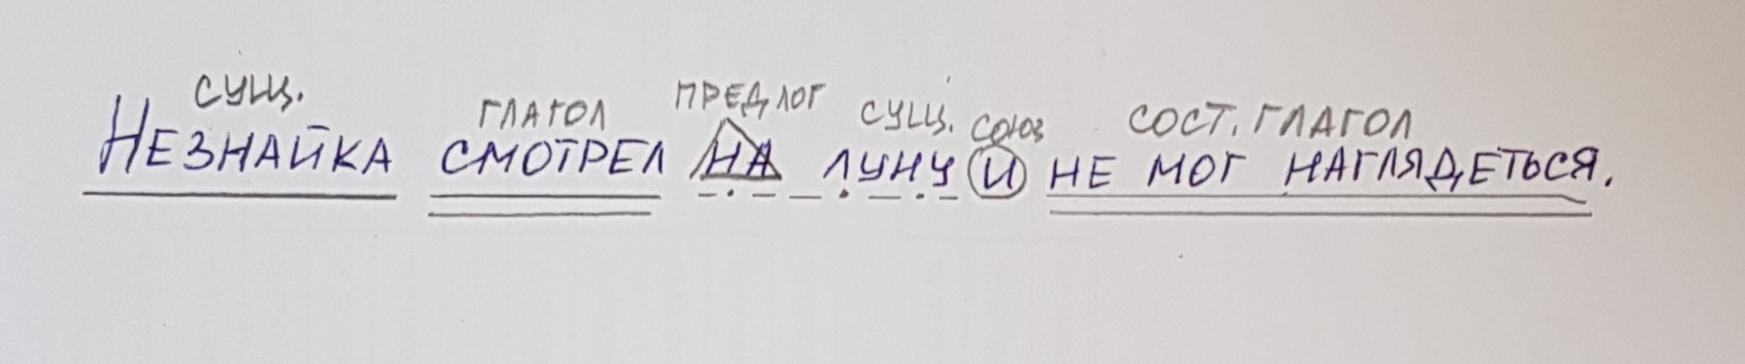 сущ. глагол предлог сущ. союз сост. глагол
Незнайка смотрел на луну и не мог наглядеться.